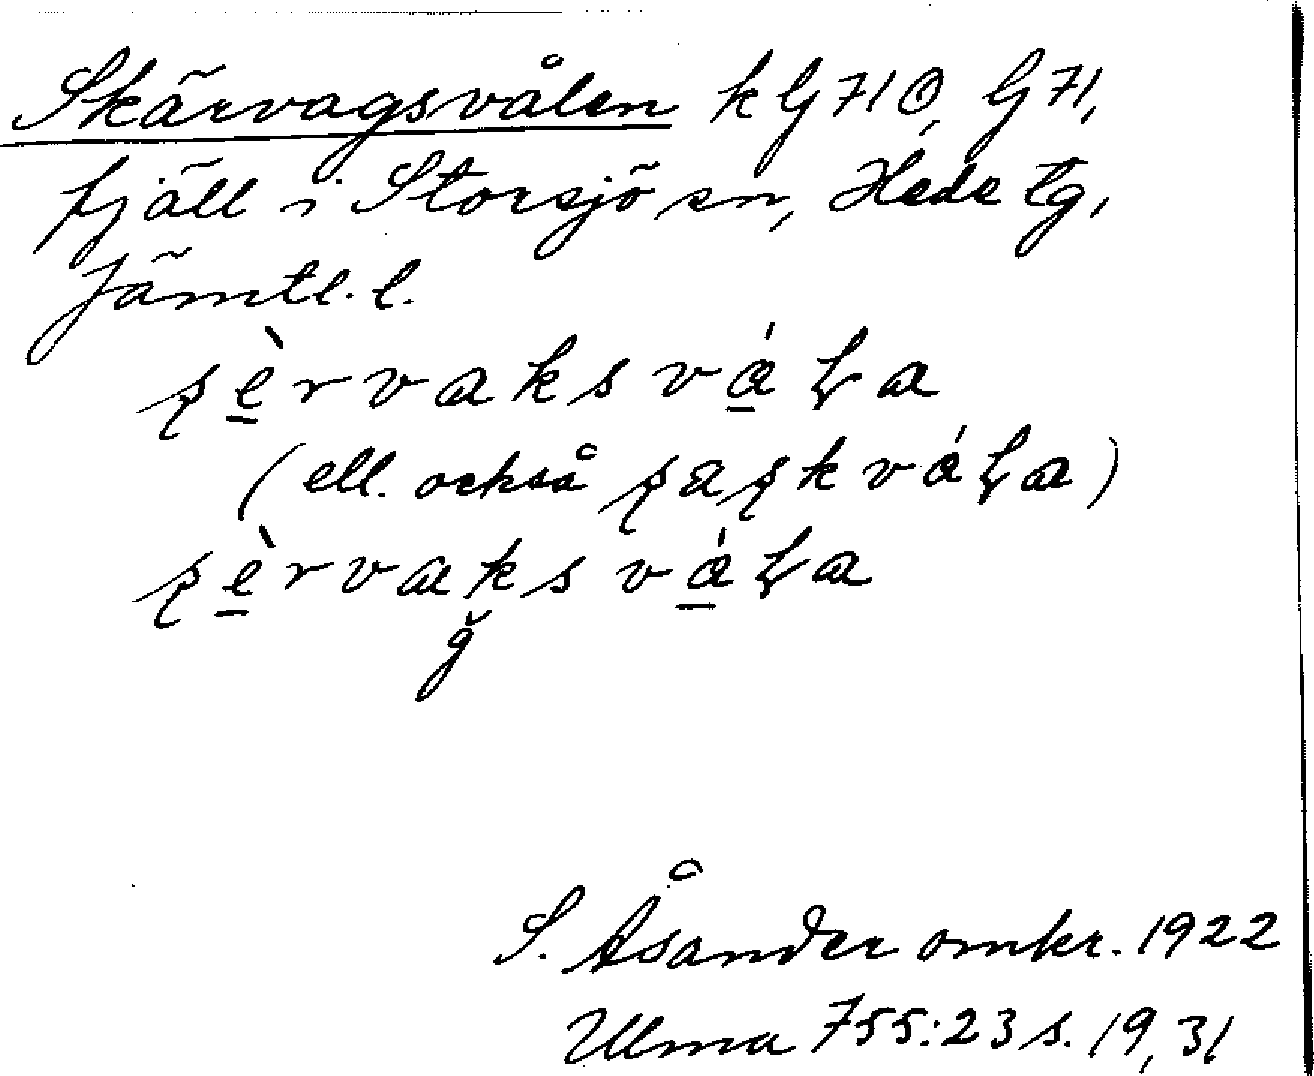 Skärvagsvålen k G 71 Ö, G 71,
fjäll i Storsjö sn, Hede tg,
Jämtl. l.
ʂè̲rvaks vá̲ɽa
(ell. också ʂaʂkváɽa)
ʂè̲rvaks vá̲ɽa
ğ
S. Åsander omkr. 1922
Ulma 755:23 s. 19, 31